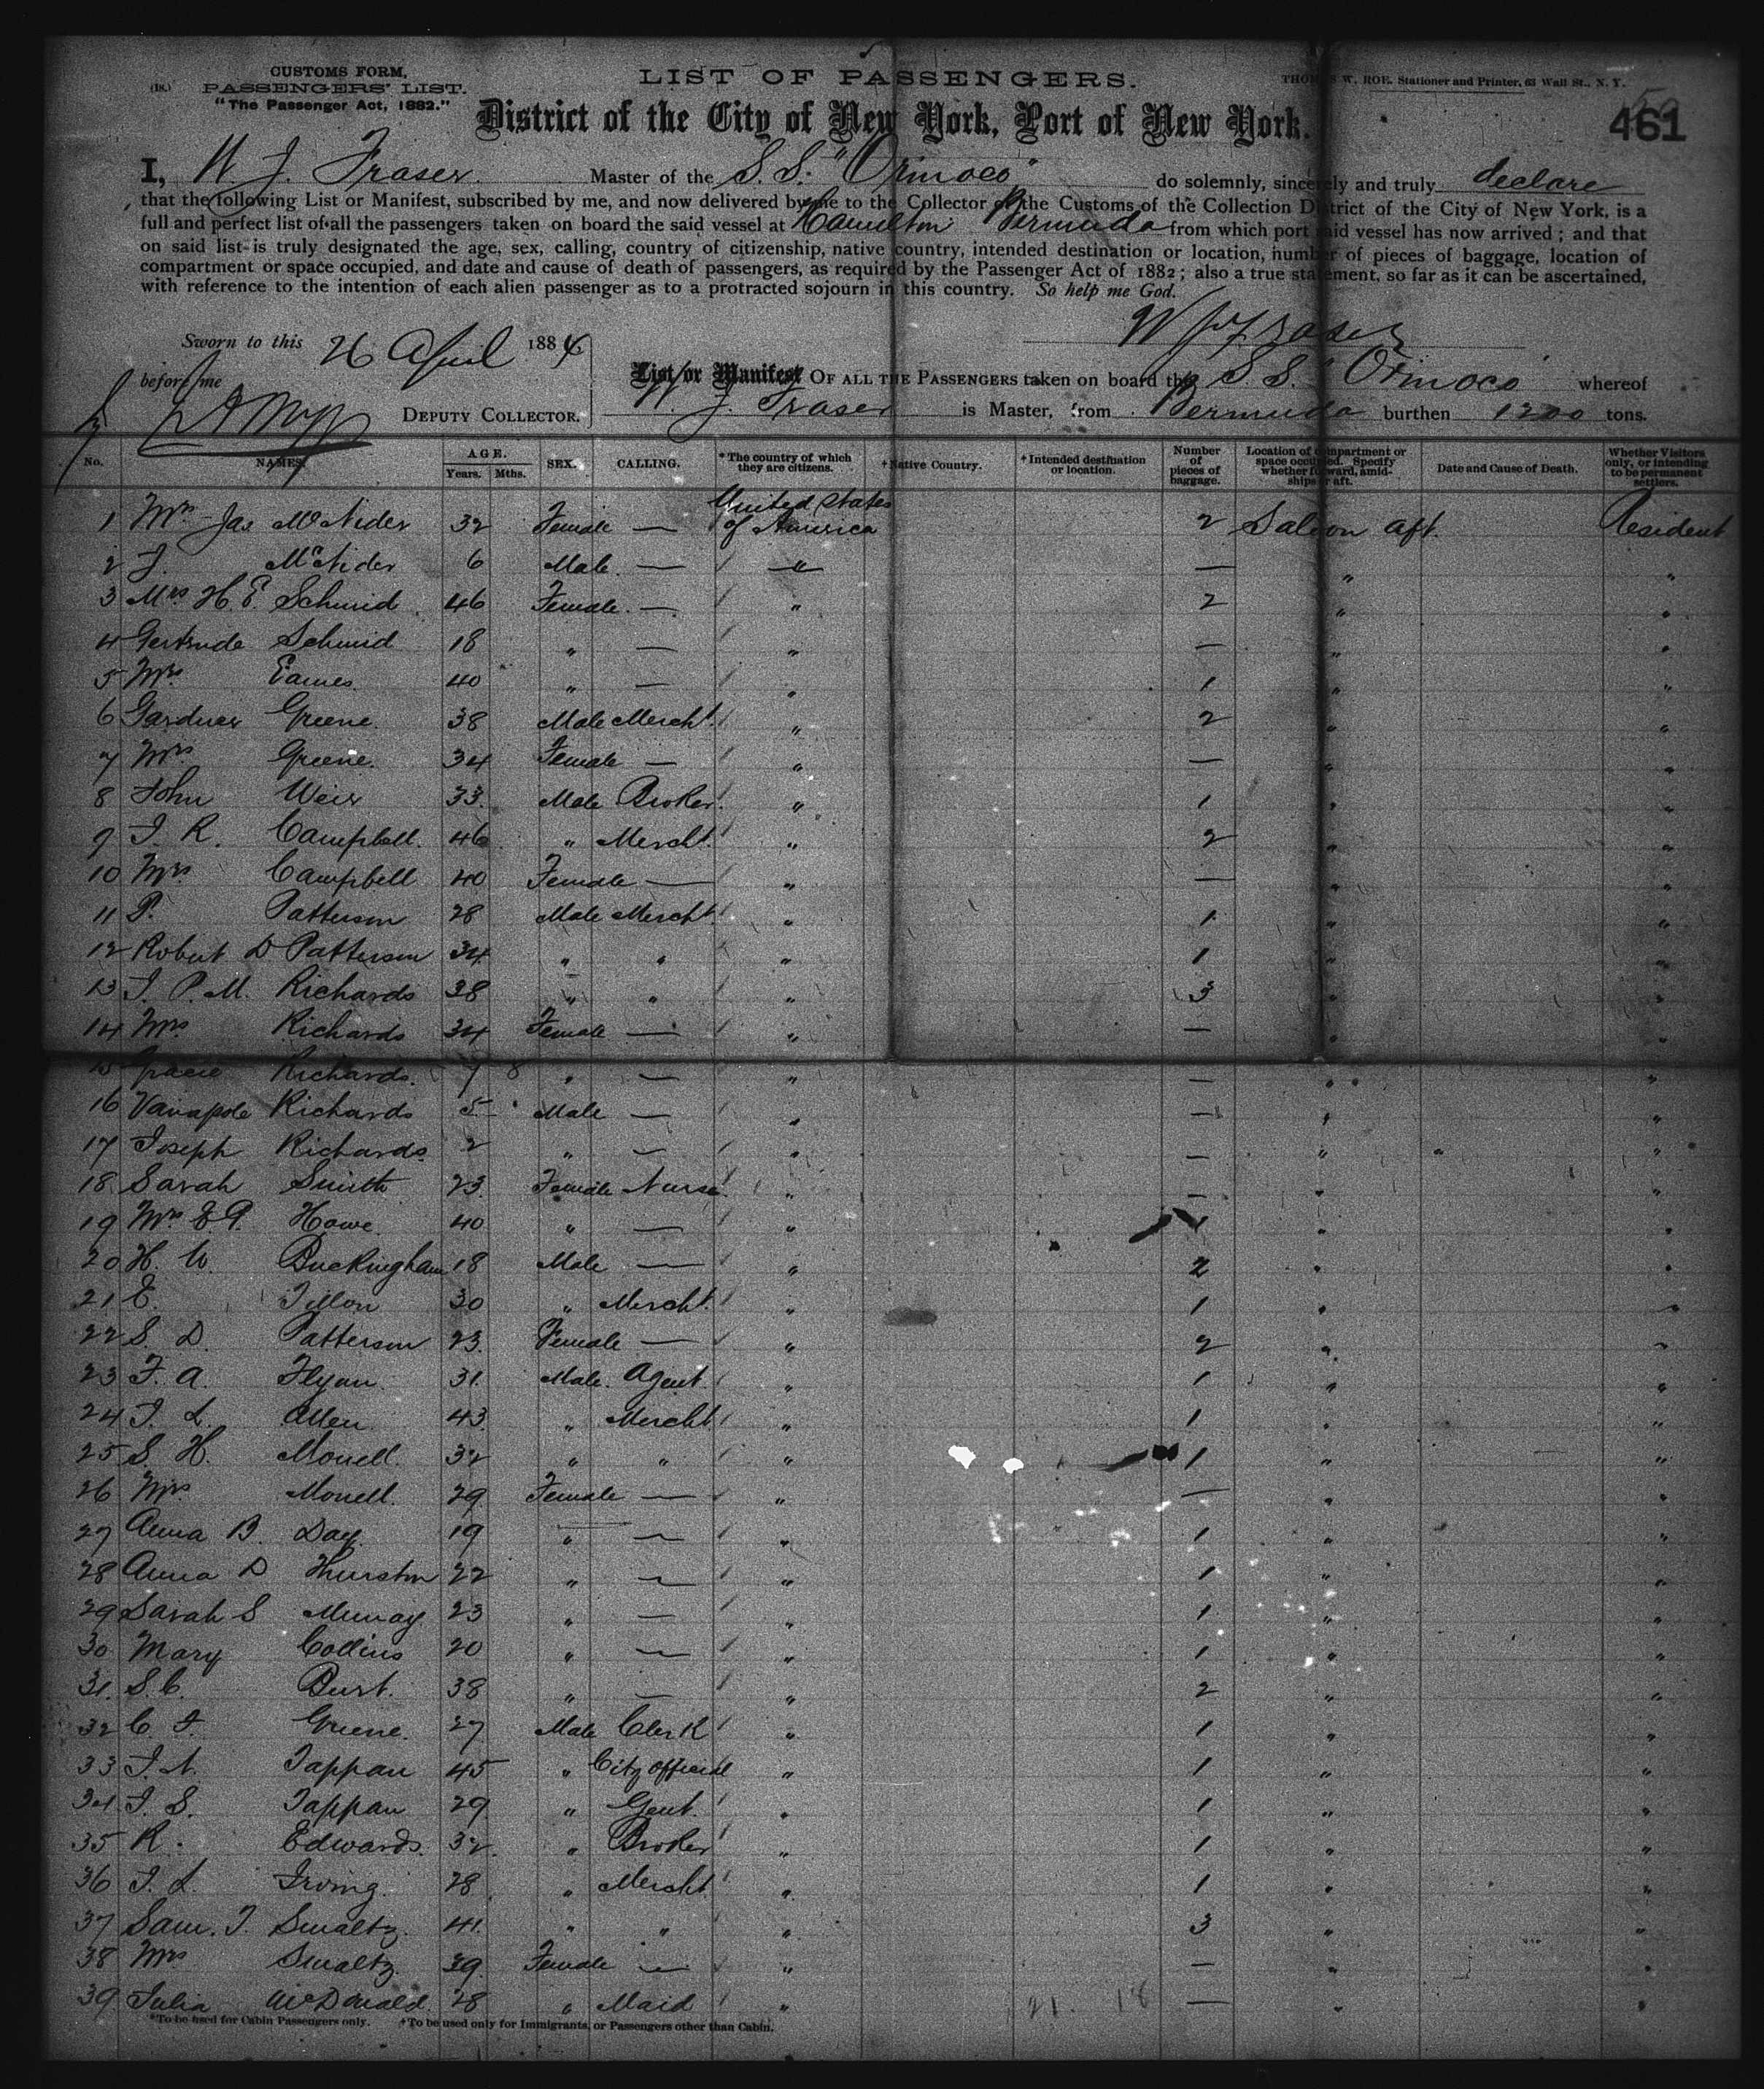 CUSTOMS FORM,
(18.) PASSENGERS' LIST.
"The Passenger Act, 1882."
LIST OF PASSENGERS.
THOMAS W. ROE. Stationer and Printer, 63 Wall St., N. Y.
District of the City of New York, Port of New York.
461
I, W. J. Fraser Master of the S. S. "Orinoco" do solemnly, sincerely and truly declare
that the following List or Manifest, subscribed by me, and now delivered by me to the Collector of the Customs of the Collection District of the City of New York, is a
full and perfect list of all the passengers taken on board the said vessel at Hamilton Bermuda from which port said vessel has now arrived; and that
on said list is truly designated the age, sex, calling, country of citizenship, native country, intended destination or location, number of pieces of baggage, location of
compartment or space occupied, and date and cause of death of passengers, as required by the Passenger Act of 1882; also a true statement, so far as it can be ascertained,
with reference to the intention of each alien passenger as to a protracted sojourn in this country. So help me God.
W J Fraser
Sworn to this 26 April 1884
before me
DEPUTY COLLECTOR.
List or Manifest OF ALL THE PASSENGERS taken on board the S. S. "Orinoco" whereof
W. J. Fraser is Master, from Bermuda burthen 1200 tons.
No. NAMES. AGE. Years. Mths. SEX. CALLING. *The country of which they are citizens. †Native Country. †Intended destination or location. Number of pieces of baggage. Location of compartment or space occupied. Specify whether forward, amidships or aft. Date and Cause of Death. Whether Visitors only, or intending to be permanent settlers.
1 Mrs Jas McNider 32 Female — United States of America 2 Saloon aft. Resident
2 J. McNider 6 Male — " — " "
3 Mrs H. E. Schmid 46 Female — " 2 " "
4 Gertrude Schmid 18 " — " — " "
5 Mrs Eames 40 " — " 1 " "
6 Gardner Greene 38 Male Mercht. " 2 " "
7 Mrs Greene 34 Female — " — " "
8 John Weir 33 Male Broker " 1 " "
9 J. R. Campbell 46 " Mercht. " 2 " "
10 Mrs Campbell 40 Female — " — " "
11 P. Patterson 28 Male Mercht. " 1 " "
12 Robert D Patterson 34 " " " 1 " "
13 J. P. M. Richards 38 " " " 3 " "
14 Mrs Richards 34 Female — " — " "
15 Gracie Richards 7 8 " — " — " "
16 Richards 5 Male — " — " "
17 Joseph Richards 2 " — " — " "
18 Sarah Smith 23 Female Nurse " — " "
19 Mrs E P. Howe 40 " — " 1 " "
20 H. W. Buckingham 18 Male — " 2 " "
21 E. 30 " Mercht. " 1 " "
22 S. D. Patterson 23 Female — " 2 " "
23 F. A. Flynn 31 Male Agent " 1 " "
24 J. L. Allen 43 " Mercht " 1 " "
25 S. H. Monell 32 " " " 1 " "
26 Mrs Monell 29 Female — " — " "
27 Anna B. Day 19 " — " 1 " "
28 Anna D Thurston 22 " — " 1 " "
29 Sarah S Murray 23 " — " 1 " "
30 Mary Collins 20 " — " 1 " "
31 S. C. Burt 38 " — " 2 " "
32 C. F. Greene 27 Male Clerk " 1 " "
33 J. N. Tappan 45 " City Official " 1 " "
34 J. S. Tappan 29 " Gent. " 1 " "
35 R. Edwards 32 " Broker " 1 " "
36 J. L. Irving 28 " Mercht " 1 " "
37 Sam. T. Smaltz 41 " " " 3 " "
38 Mrs Smaltz 39 Female — " — " "
39 Julia McDonald 28 " Maid " — " "
21. 18
*To be used for Cabin Passengers only. †To be used only for Immigrants, or Passengers other than Cabin.